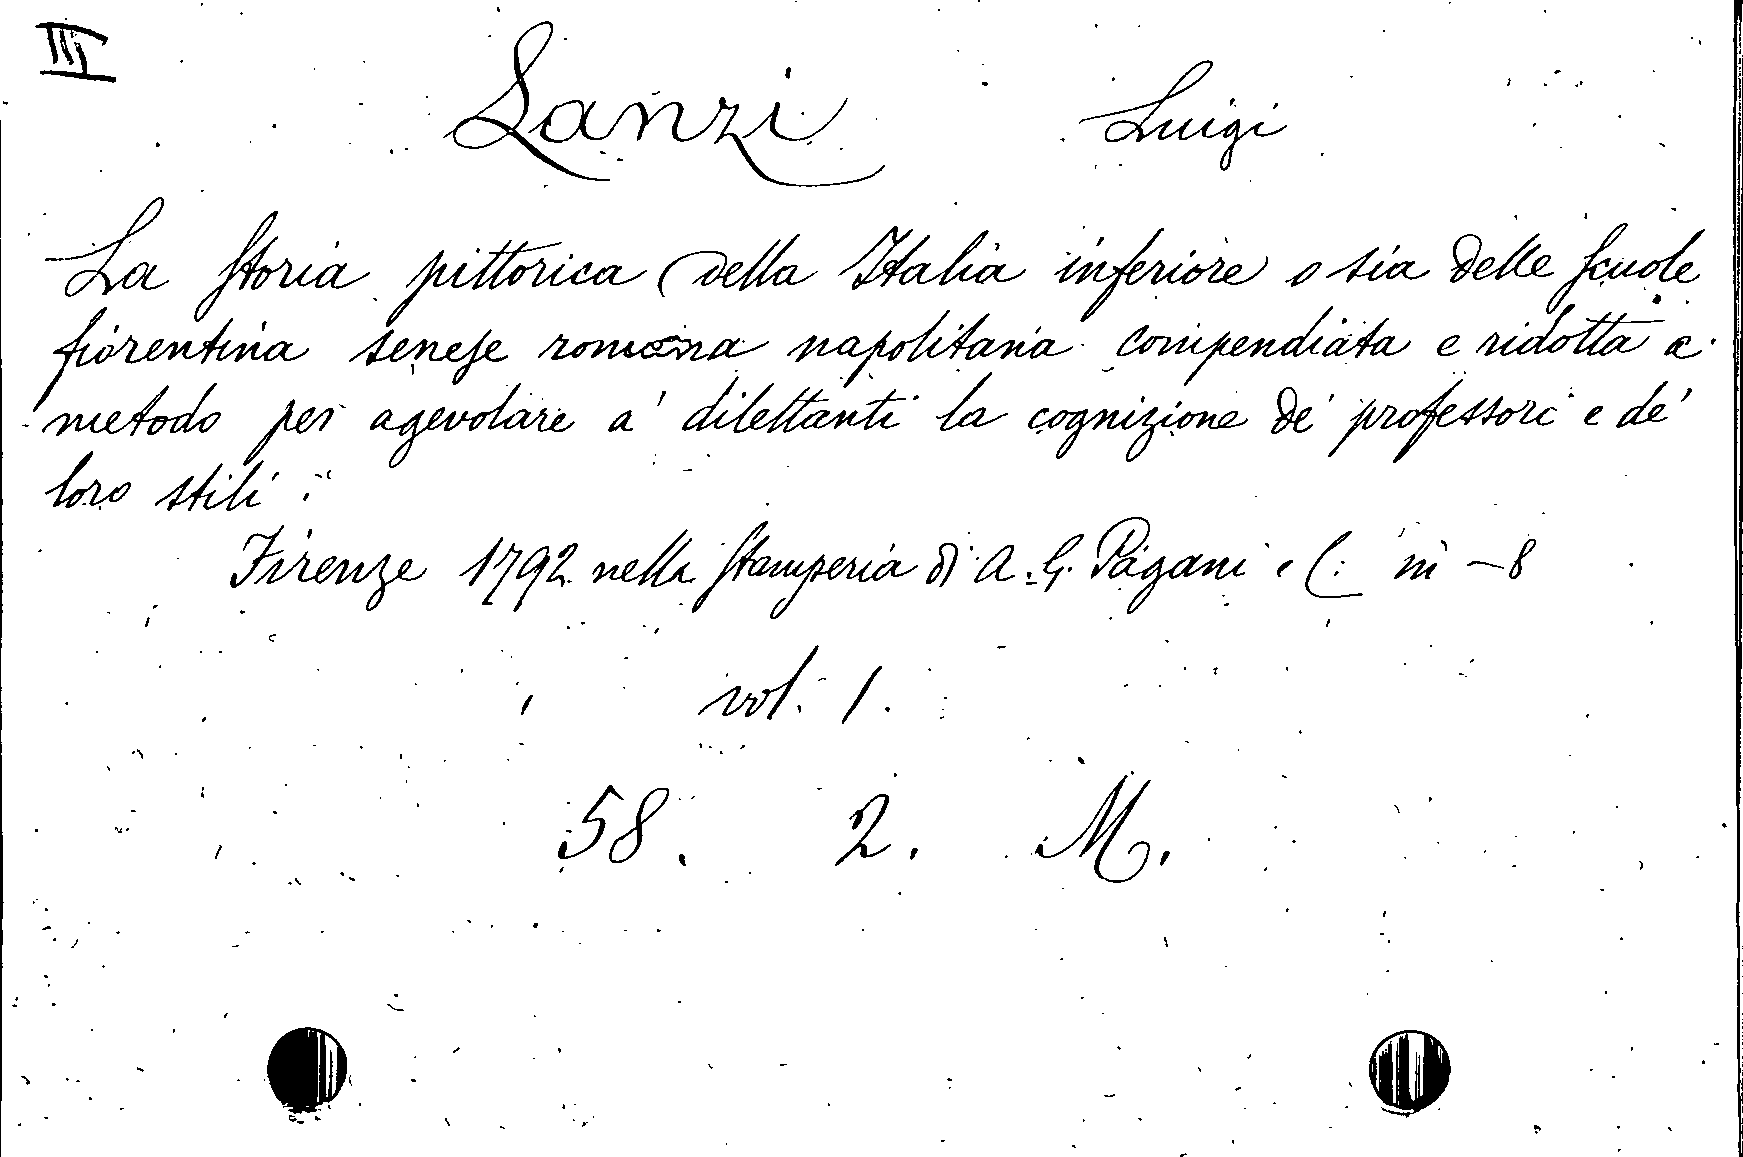 III
Lanzi Luigi
La Storia pittorica della Italia inferiore o sia delle Scuole
fiorentina senese romana napolitana compendiata e ridotta a
metodo per agevolare a' dilettanti la cognizione de' professori e de'
loro stili.
Firenze 1792 nella Stamperia di A. G. Pagani e C: in-8
vol. 1.
58. 2. M.